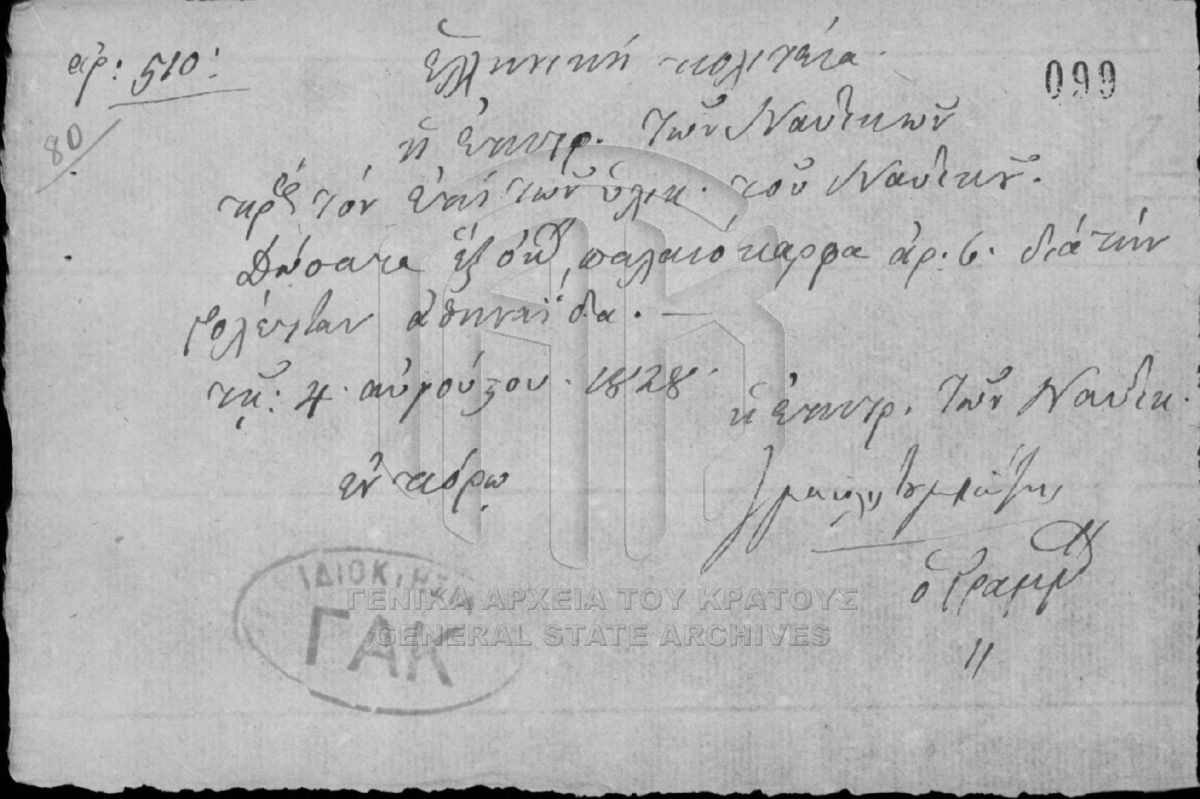 ἀρ: 510:
Ἑλληνικὴ πολιτεία.
099
80
ἡ ἐπιτρ. τῶν Ναυτικῶν
πρὸς τὸν ἐπὶ τῶν ὑλικ. τοῦ Ναυτικοῦ.
Δώσατε ἓξ ὀκ παλαιόκαρφα ἀρ. 6. διὰ τὴν
γολέτταν ἀθηναΐδα. —
τῇ: 4 αὐγούστου. 1828
ἡ ἐπιτρ. τῶν Ναυτικ.
ἐν πόρῳ
ὁ Γραμμ
ΙΔΙΟΚΤΗΣΙΑ
ΓΑΚ
ΓΕΝΙΚΑ ΑΡΧΕΙΑ ΤΟΥ ΚΡΑΤΟΥΣ
GENERAL STATE ARCHIVES